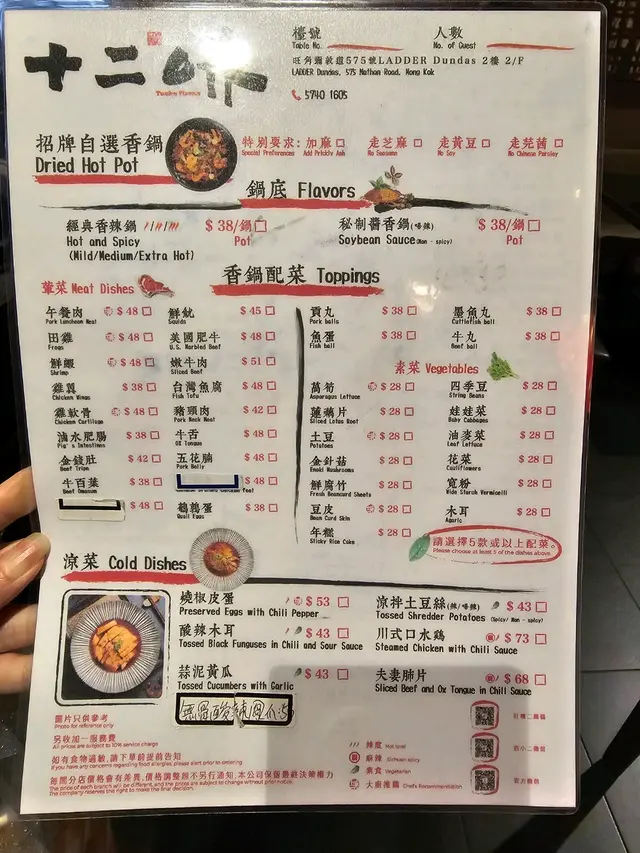 十二味
Twelve Flavors
檯號
Table No.
人數
No. of Guest
旺角彌敦道575號LADDER Dundas 2樓 2/F
LADDER Dundas, 575 Nathan Road, Mong Kok
5740 1605
招牌自選香鍋
Dried Hot Pot
特別要求: 加麻 走芝麻 走黃豆 走芫茜
Special Preferences Add Prickly Ash No Sesame No Soy No Chinese Parsley
鍋底 Flavors
經典香辣鍋 $ 38/鍋
Hot and Spicy Pot
(Mild/Medium/Extra Hot)
秘制醬香鍋(唔辣) $ 38/鍋
Soybean Sauce(Non - spicy) Pot
香鍋配菜 Toppings
葷菜 Meat Dishes
午餐肉 $ 48
Pork Luncheon Meat
田雞 $ 48
Frogs
鮮蝦 $ 48
Shrimp
雞翼 $ 38
Chicken Wings
雞軟骨 $ 48
Chicken Cartilage
滷水肥腸 $ 38
Pig's Intestines
金錢肚 $ 42
Beef Tripe
牛百葉 $ 38
Beef Omasum
$ 48
鮮魷 $ 45
Squids
美國肥牛 $ 48
U.S. Marbled Beef
嫩牛肉 $ 51
Sliced Beef
台灣魚腐 $ 48
Fish Tofu
豬頸肉 $ 42
Pork Neck Meat
牛舌 $ 48
OX Tongue
五花腩 $ 48
Pork Belly
$ 48
鵪鶉蛋 $ 38
Quail Eggs
貢丸 $ 38
Pork balls
魚蛋 $ 38
Fish ball
墨魚丸 $ 38
Cuttlefish ball
牛丸 $ 38
Beef ball
素菜 Vegetables
萵筍 $ 28
Asparagus Lettuce
蓮藕片 $ 28
Sliced Lotus Root
土豆 $ 28
Potatoes
金針菇 $ 28
Enoki Mushrooms
鮮腐竹 $ 28
Fresh Beancurd Sheets
豆皮 $ 28
Bean Curd Skin
年糕 $ 28
Sticky Rice Cake
四季豆 $ 28
String Beans
娃娃菜 $ 28
Baby Cabbages
油麥菜 $ 28
Leaf Lettuce
花菜 $ 28
Cauliflowers
寬粉 $ 28
Wide Starch Vermicelli
木耳 $ 28
Agaric
請選擇5款或以上配菜。
Please choose at least 5 of the dishes above.
涼菜 Cold Dishes
燒椒皮蛋 $ 53
Preserved Eggs with Chili Pepper
酸辣木耳 $ 43
Tossed Black Funguses in Chili and Sour Sauce
蒜泥黃瓜 $ 43
Tossed Cucumbers with Garlic
涼拌土豆絲(辣/唔辣) $ 43
Tossed Shredder Potatoes (Spicy/ Non - spicy)
川式口水鷄 $ 73
Steamed Chicken with Chili Sauce
夫妻肺片 $ 68
Sliced Beef and Ox Tongue in Chili Sauce
圖片只供參考
Photo for reference only
另收加一服務費
All prices are subject to 10% service charge
如有食物過敏,請下單前提前告知
If you have any concerns regarding food allergies, please alert prior to ordering.
每間分店價格會有差異,價格調整恕不另行通知,本公司保留最終決策權力
The price of each branch will be different, and the prices are subject to change without prior notice.
The company reserves the right to make the final decision.
辣度 Hot level
麻辣 Sichuan spicy
素食 Vegetarian
大廚推薦 Chef's Recommendation